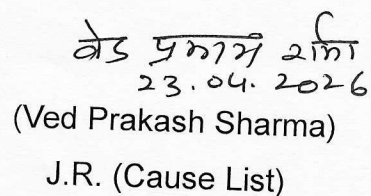 वेद प्रकाश शर्मा
23.04.2026
(Ved Prakash Sharma)
J.R. (Cause List)